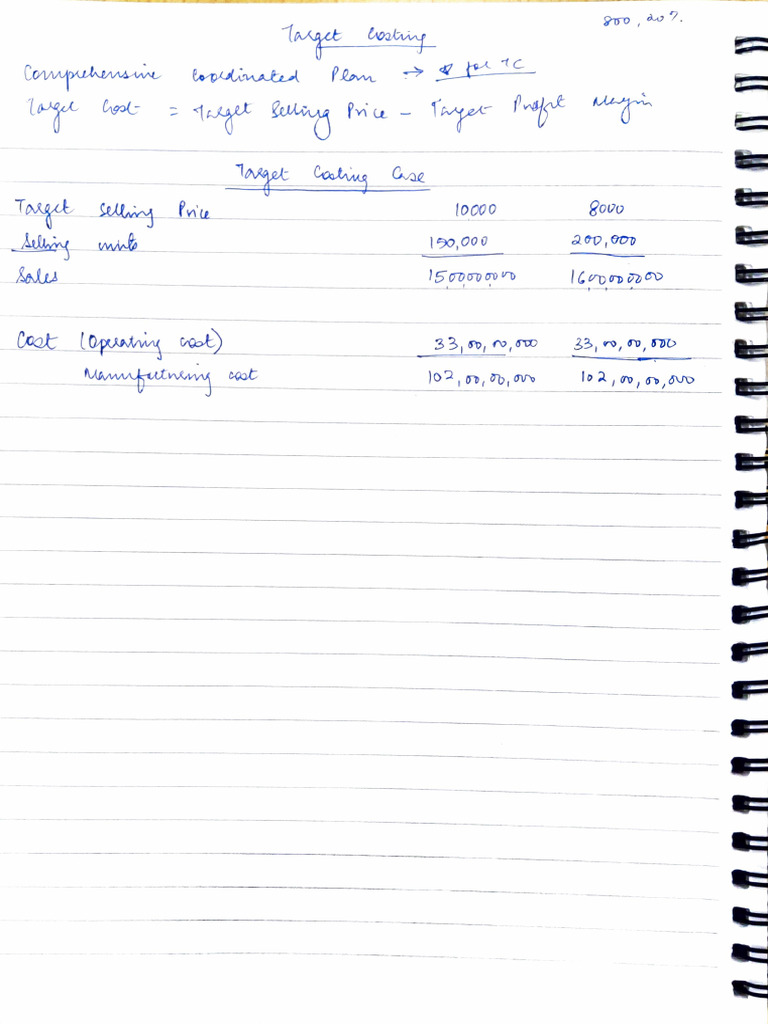 800, 20%.
Target Costing
Comprehensive Coordinated Plan → for TC
Target Cost = Target Selling Price - Target Profit Margin
Target Costing Case
Target Selling Price 10000 8000
Selling units 150,000 200,000
Sales 1500000000 1600000000
Cost (Operating cost) 33,00,00,000 33,00,00,000
Manufacturing cost 102,00,00,000 102,00,00,000